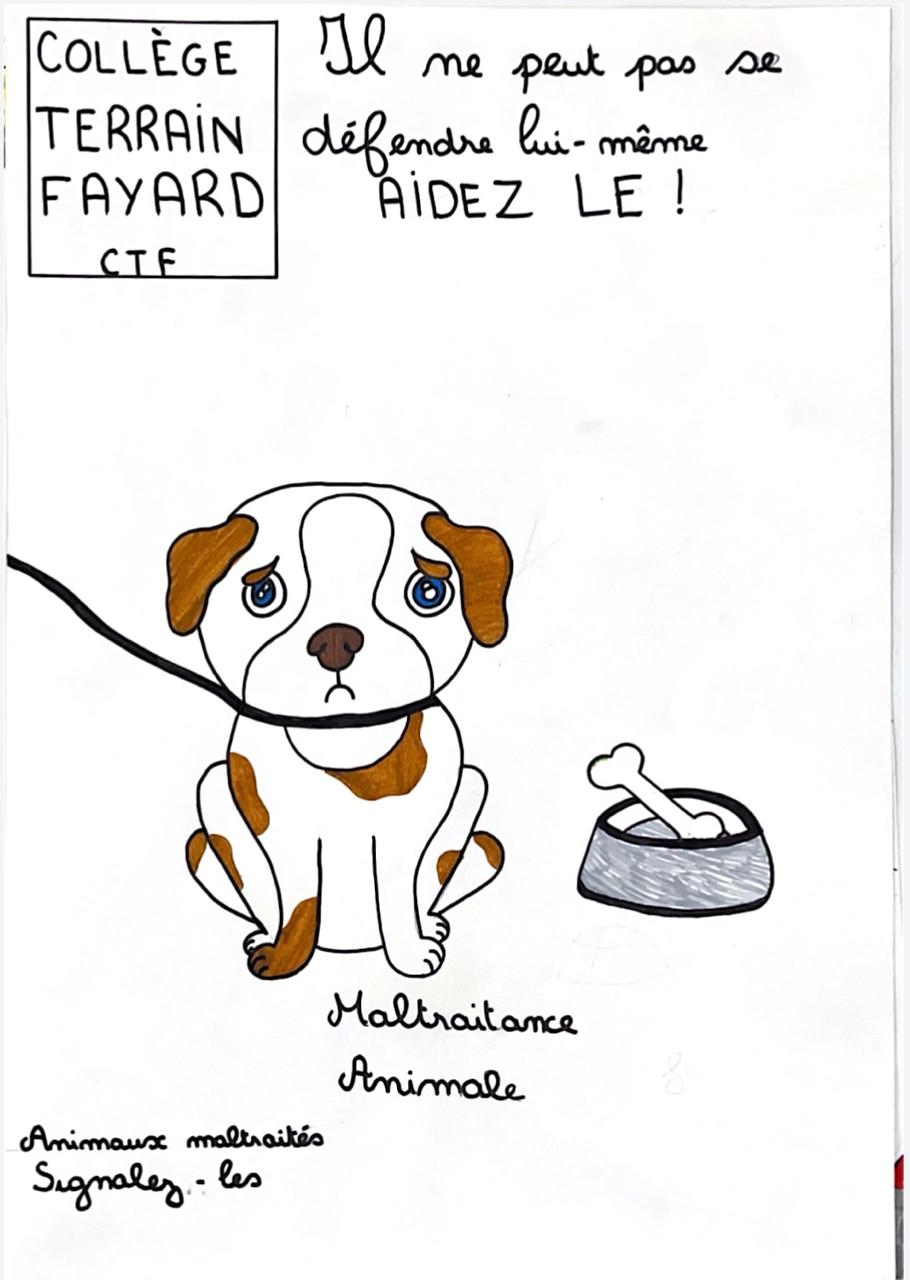 COLLÈGE
TERRAIN
FAYARD
CTF
Il ne peut pas se
défendre lui-même
AIDEZ LE !
Maltraitance
Animale
Animaux maltraités
Signalez-les